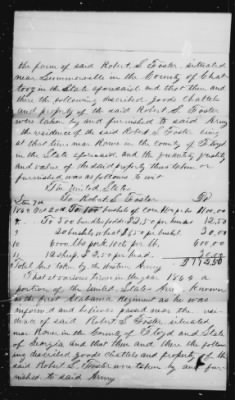 the farm of said Robert S. Foster situated
near Summerville in the County of Chat
tooga in the State aforesaid and that then and
there the following described goods chattels
and property of the said Robert S. Foster
were taken by and furnished to said Army
the residence of the said Robert S. Foster being
at that time near Rome in the county of Floyd
in the State aforesaid, and the quantity quality
and value of the property thus taken or
furnished was as follows to wit
The United States
To Robert S. Foster Dr
1864 Oct bushels of Corn per bu
To 5 bu 2.50 per bushel 12.50
bushels wheat per bushel 30.00
6000 lbs pork 10c per lb. 600.00
Sheep per head
taken by the Union Army
That at various times in the year 1864 a
portion of the United States Army known
as the first Alabama Regiment as he was
informed and believes passed near the res
idence of said Robert S. Foster situated
near Rome in the County of Floyd and State
of Georgia and that then and there the follow
ing described goods chattels and property of the
said Robert S. Foster were taken by and fur
nished to said Army